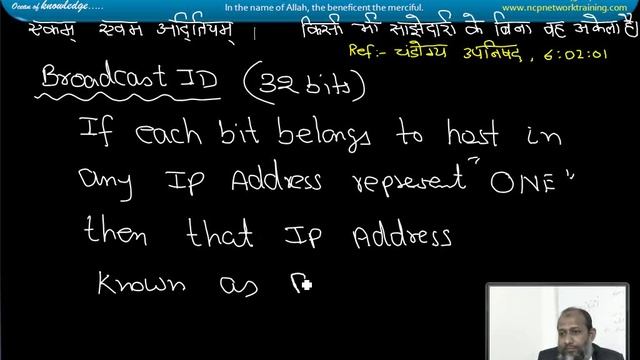 Ocean of knowledge.....
In the name of Allah, the beneficent the merciful.
www.ncpnetworktraining.com
एकम् एवम अद्वितियम् । किसी भी साझेदारी के बिना वह अकेला है
Ref:- चंडोग्य उपनिषद, 6:02:01
Broadcast ID (32 bits)
If each bit belongs to host in
any IP Address represent "ONE"
then that IP Address
known as